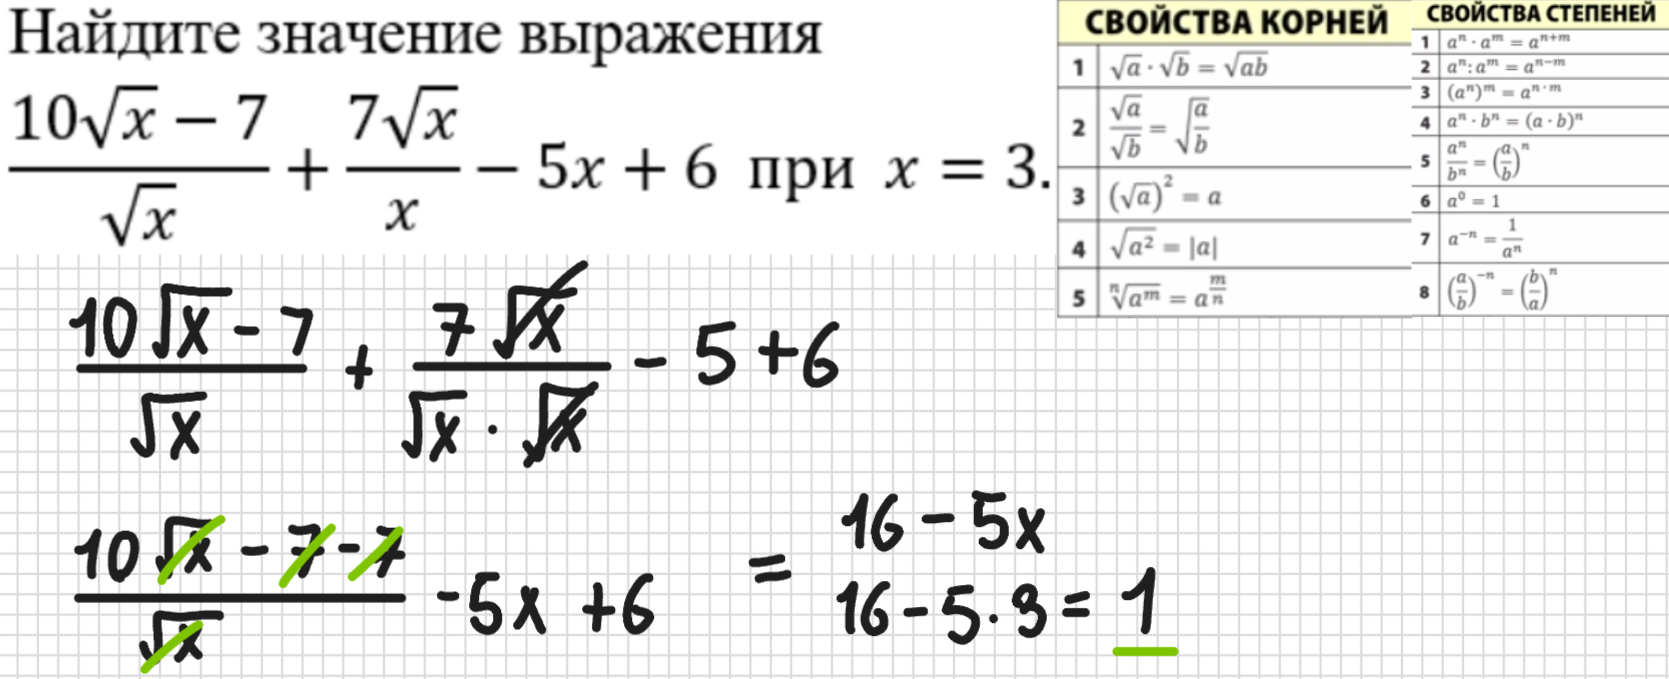 Найдите значение выражения
(10√x − 7)/√x + 7√x/x − 5x + 6 при x = 3.
СВОЙСТВА КОРНЕЙ
1 √a · √b = √ab
2 √a/√b = √(a/b)
3 (√a)² = a
4 √a² = |a|
5 ⁿ√aᵐ = a^(m/n)
СВОЙСТВА СТЕПЕНЕЙ
1 aⁿ · aᵐ = aⁿ⁺ᵐ
2 aⁿ : aᵐ = aⁿ⁻ᵐ
3 (aⁿ)ᵐ = aⁿ·ᵐ
4 aⁿ · bⁿ = (a · b)ⁿ
5 aⁿ/bⁿ = (a/b)ⁿ
6 a⁰ = 1
7 a⁻ⁿ = 1/aⁿ
8 (a/b)⁻ⁿ = (b/a)ⁿ
(10√x − 7)/√x + 7√x/(√x · √x) − 5 + 6
(10√x − 7 − 7)/√x − 5x + 6 = 16 − 5x
16 − 5 · 3 = 1